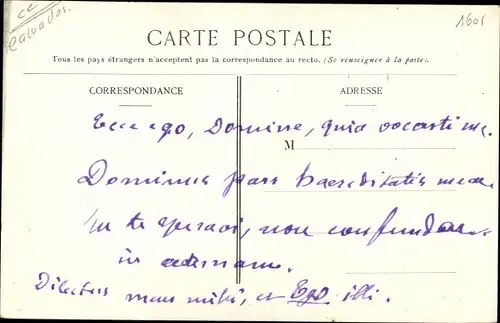 Calvados.
1601
CARTE POSTALE
Tous les pays étrangers n'acceptent pas la correspondance au recto. (Se renseigner à la poste).
CORRESPONDANCE
ADRESSE
Ecce ego, Domine, quia vocasti me.
M
Dominus pars haereditatis meae
In te speravi, non confundar
in aeternum.
Dilectus meus mihi, et Ego illi.